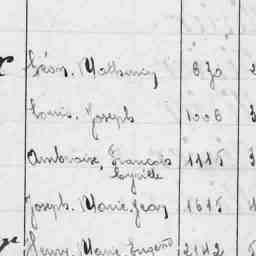 Léon, Mathurin 870
Louis, Joseph 1006 3
Ambroise, François 1115 3
Cyrille
Joseph, Marie, Jean 1615 4
Henri, Marie, Eugène 2142 5